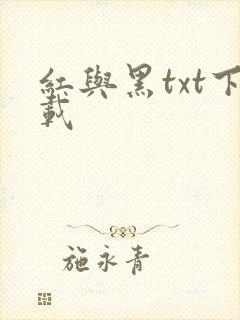 紅與黑txt下
載
施永青